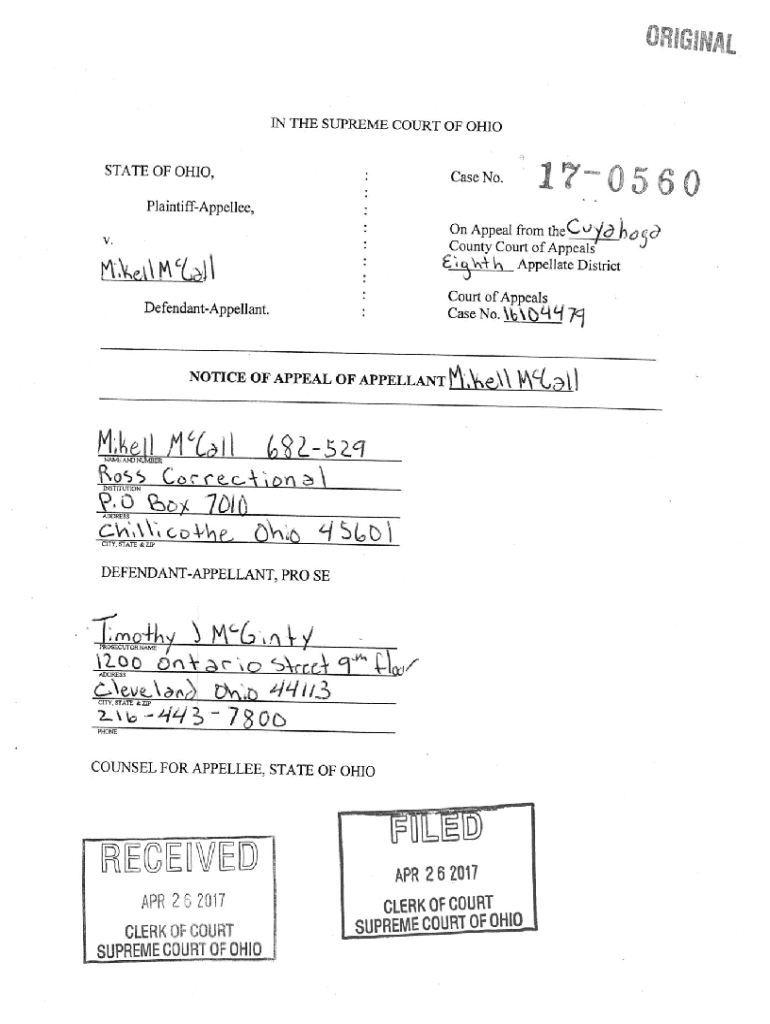 ORIGINAL
IN THE SUPREME COURT OF OHIO
STATE OF OHIO,
Plaintiff-Appellee,
v.
Mikell McCall
Defendant-Appellant.
:
:
:
:
:
:
:
:
:
Case No. 17-0560
On Appeal from the Cuyahoga
County Court of Appeals
Eighth Appellate District
Court of Appeals
Case No. 16104479
NOTICE OF APPEAL OF APPELLANT Mikell McCall
Mikell McCall 682-529
NAME AND NUMBER
Ross Correctional
INSTITUTION
P.O Box 7010
ADDRESS
Chillicothe Ohio 45601
CITY, STATE & ZIP
DEFENDANT-APPELLANT, PRO SE
Timothy J McGinty
PROSECUTOR NAME
1200 Ontario Street 9th floor
ADDRESS
Cleveland Ohio 44113
CITY, STATE & ZIP
216-443-7800
PHONE
COUNSEL FOR APPELLEE, STATE OF OHIO
RECEIVED
APR 26 2017
CLERK OF COURT
SUPREME COURT OF OHIO
FILED
APR 26 2017
CLERK OF COURT
SUPREME COURT OF OHIO